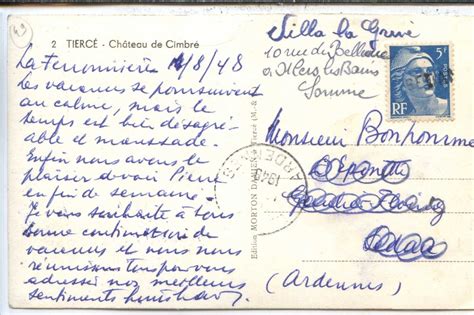 49
2 TIERCÉ - Château de Cimbré
La Ferronnière 1/8/48
Les vacances se poursuivent
au calme, mais le
temps est bien désagré-
able et maussade.
Enfin nous avons le
plaisir d'avoir Pierre
en fin de semaine.
Je vous souhaite à tous
bonne continuation de
vacances et nous nous
réunissons tous pour vous
adresser nos meilleurs
sentiments
Edition MORTON
ARDENNES
1948
Villa la Grive
10 rue de Bellevue
Somme
5F
POSTES
RF
Monsieur Bonhomme
(Ardennes)